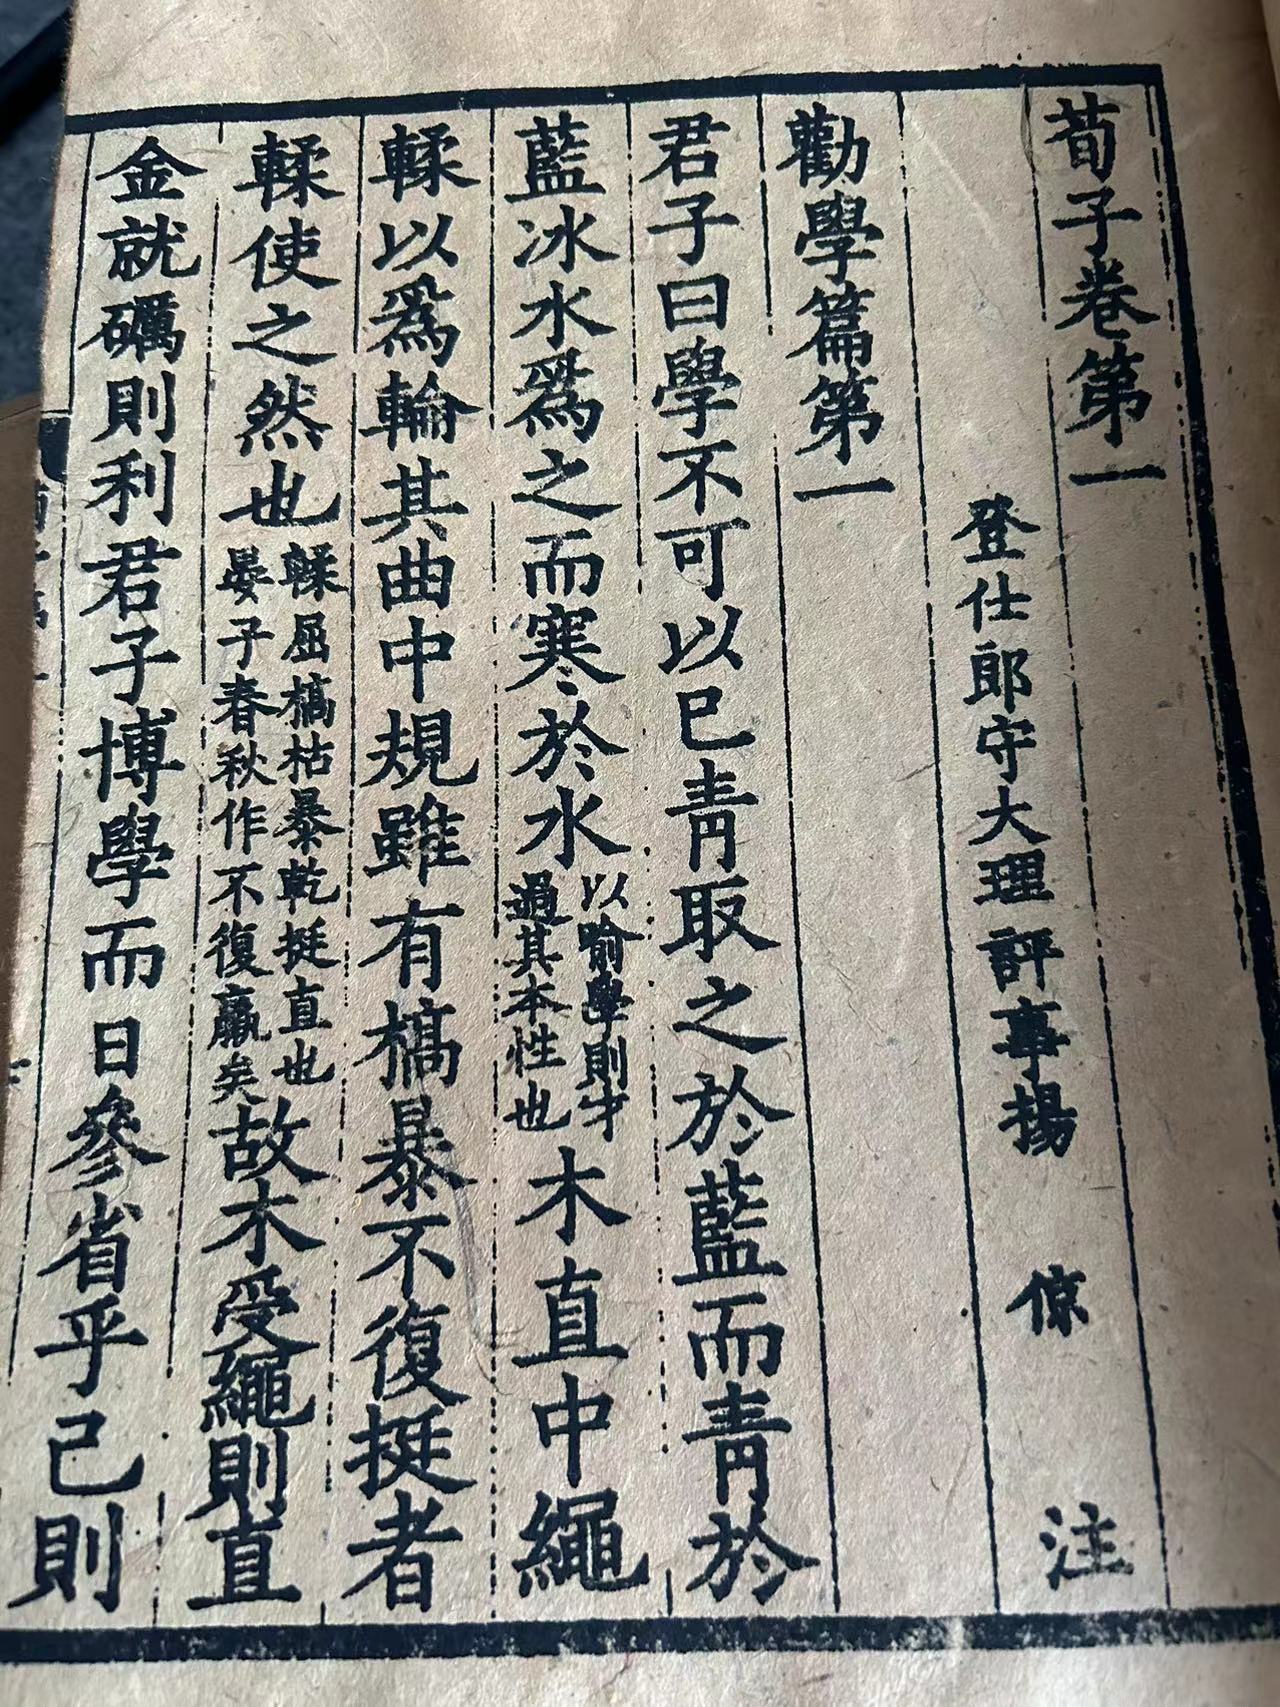 荀子卷第一
登仕郎守大理評事揚 倞 注
勸學篇第一
君子曰學不可以已青取之於藍而青於
藍冰水爲之而寒於水以喻學則才過其本性也木直中繩
輮以爲輪其曲中規雖有槁暴不復挺者
輮使之然也輮屈槁枯暴乾挺直也晏子春秋作不復羸矣故木受繩則直
金就礪則利君子博學而日參省乎己則